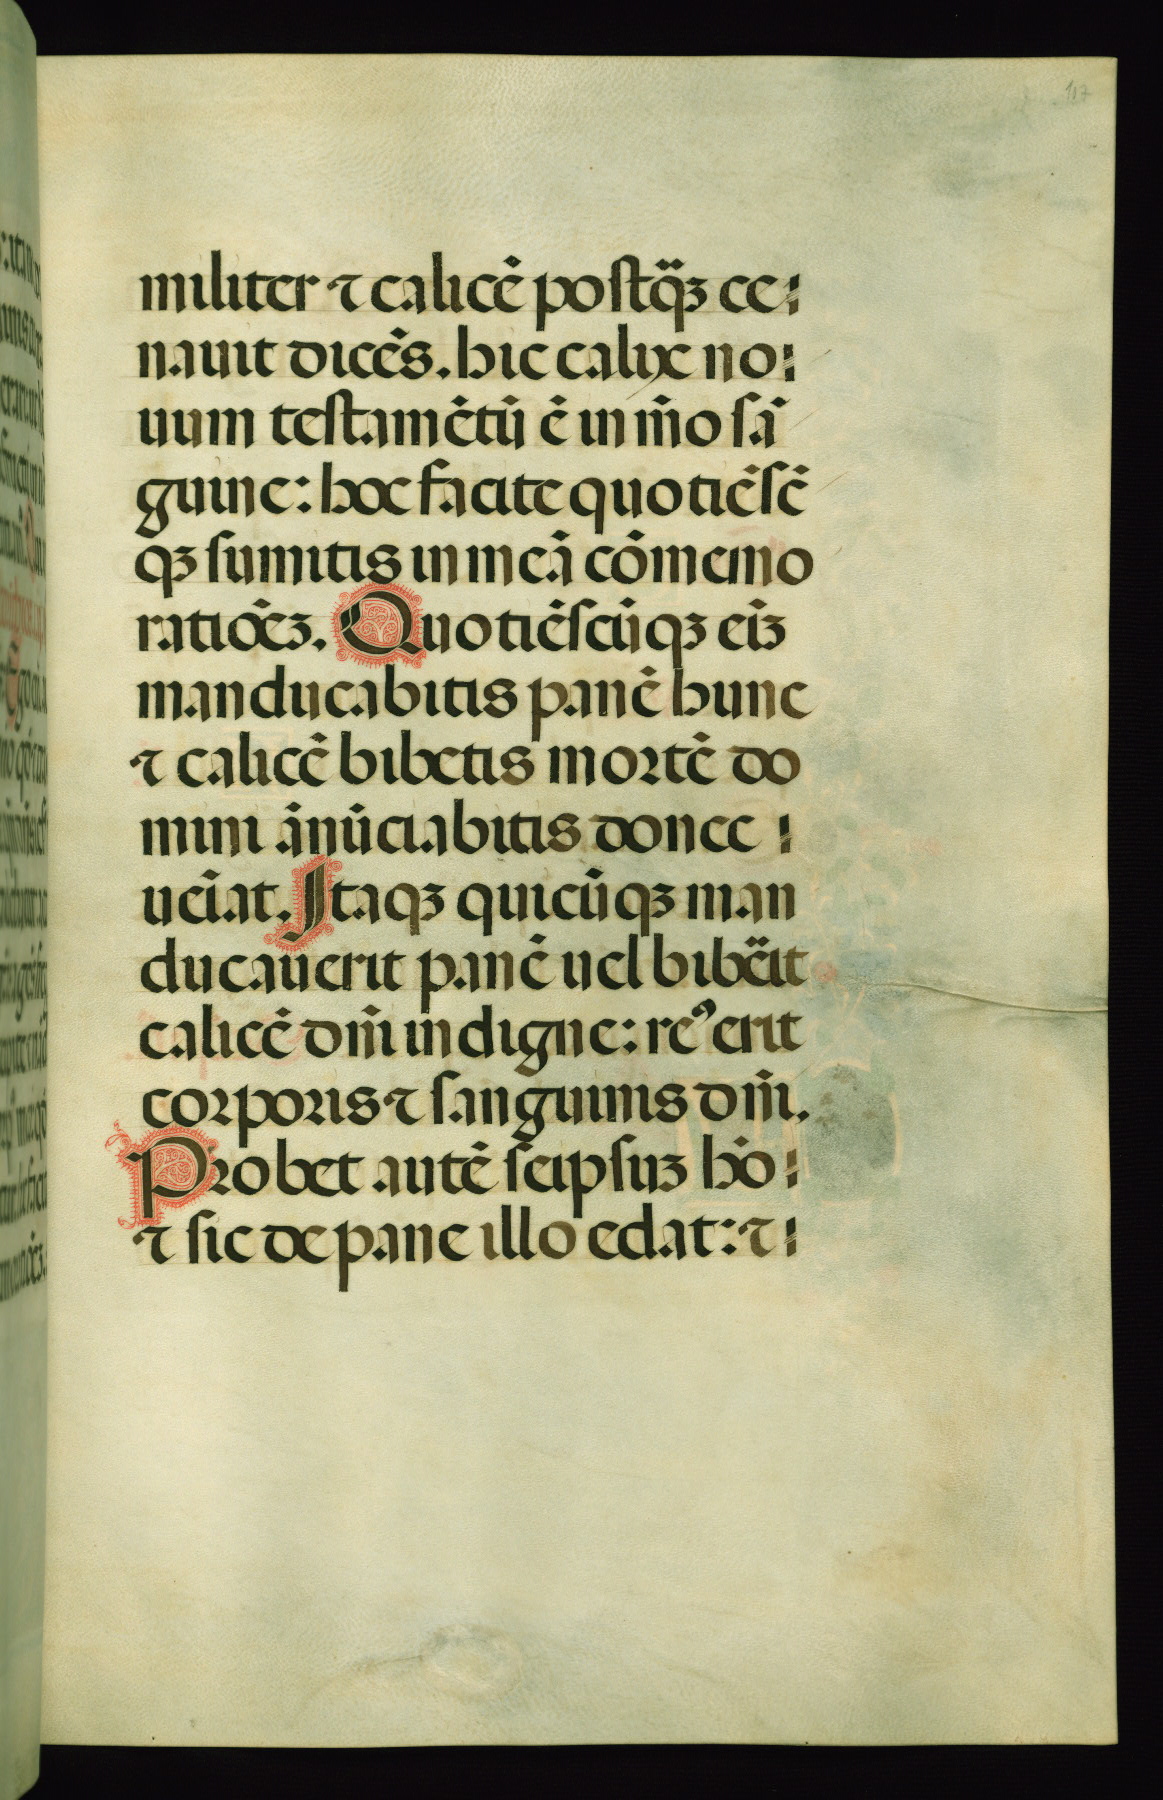 117
militer ⁊ calicē postq̃ꝫ ce⁝
nauit dicēs. hic calix no⁝
uum testamētū ē in m̃o sã
guine: hoc facite quotiēscū
qꝫ sumitis in meā cōmemo
ratiõeꝫ. Quotiēscūqꝫ eĩꝫ
manducabitis panē hunc
⁊ calicē bibetis mortē do
mini ãnũciabitis donec ⁝
ueĩat. Itaqꝫ quicūqꝫ man
ducauerit panē uel biberit
calicē dñi indigne: reꝰ erit
corporis ⁊ sanguinis dñi.
Probet autē seipsuꝫ hõ⁝
⁊ sic de pane illo edat: ⁊⁝